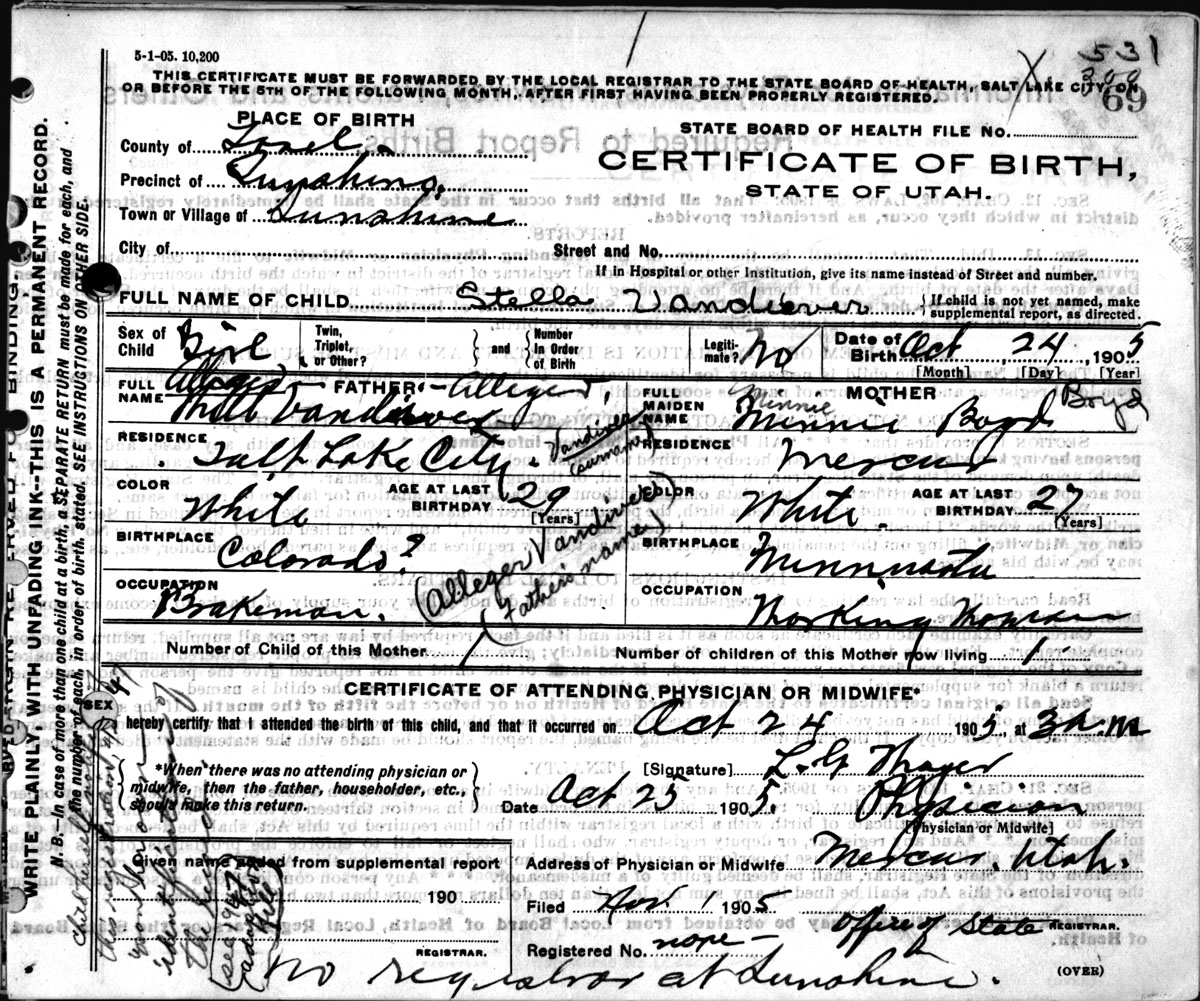 5-1-05. 10,200
531
300
69
THIS CERTIFICATE MUST BE FORWARDED BY THE LOCAL REGISTRAR TO THE STATE BOARD OF HEALTH, SALT LAKE CITY, ON
OR BEFORE THE 5TH OF THE FOLLOWING MONTH, AFTER FIRST HAVING BEEN PROPERLY REGISTERED.
PLACE OF BIRTH
County of Tooel
Precinct of Sunshine.
Town or Village of Sunshine
City of
STATE BOARD OF HEALTH FILE NO.
CERTIFICATE OF BIRTH,
STATE OF UTAH.
Street and No.
If in Hospital or other Institution, give its name instead of Street and number.
FULL NAME OF CHILD Stella Vandiever
If child is not yet named, make
supplemental report, as directed.
Sex of Child Girl
Twin, Triplet, or Other?
and Number In Order of Birth
Legitimate? No
Date of Birth Oct 24 1905
[Month] [Day] [Year]
FATHER
Alleged - Alleged
FULL NAME Will Vandiver
Vandiver (surname)
RESIDENCE Salt Lake City.
COLOR White
AGE AT LAST BIRTHDAY 29
[Years]
BIRTHPLACE Colorado?
OCCUPATION Brakeman.
(Alleger Vandiver)
(Father's name)
MOTHER
FULL MAIDEN NAME Minnie Boyd
Minnie
Boyd
RESIDENCE Mercur
COLOR White.
AGE AT LAST BIRTHDAY 27
[Years]
BIRTHPLACE Minnisota
OCCUPATION Working Woman
Number of Child of this Mother 1
Number of children of this Mother now living 1
CERTIFICATE OF ATTENDING PHYSICIAN OR MIDWIFE*
I hereby certify that I attended the birth of this child, and that it occurred on Oct 24 1905, at 3 a.m
*When there was no attending physician or
midwife, then the father, householder, etc.,
should make this return.
[Signature] L. G. Thayer
Date Oct 25 1905. Physician
[Physician or Midwife]
Given name added from supplemental report
190
REGISTRAR.
Address of Physician or Midwife Mercur, Utah.
Filed Nov. 1 1905
Office of State REGISTRAR.
Registered No. none -
No registrar at Sunshine.
(OVER)
WRITE PLAINLY, WITH UNFADING INK--THIS IS A PERMANENT RECORD.
N. B.- In case of more than one child at a birth, a SEPARATE RETURN must be made for each, and
the number of each, in order of birth, stated. SEE INSTRUCTIONS ON OTHER SIDE.
SEX